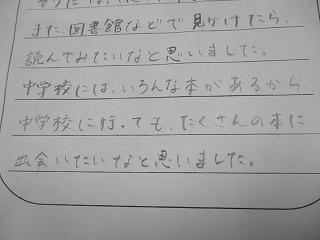 また、図書館などで見かけたら、
読んでみたいなと思いました。
中学校には、いろんな本があるから、
中学校に行っても、たくさんの本に
出会いたいなと思いました。